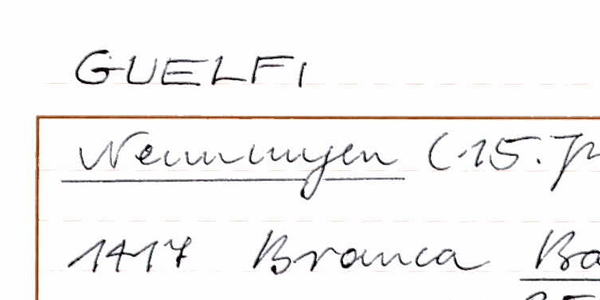 GUELFI
Nennungen (15. J
1417 Branca Ba